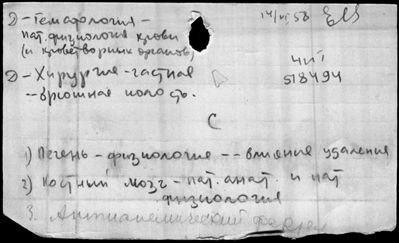 Д - Гематология -
пат. физиология крови
(и кроветворных органов)
14/VI 58
Д - Хирургия - частная
-- брюшная полость.
ЧИТ
518494
С
1) Печень - физиология -- влияние удаления
2) Костный мозг - пат. анат. и пат
физиология
3. Антианемический